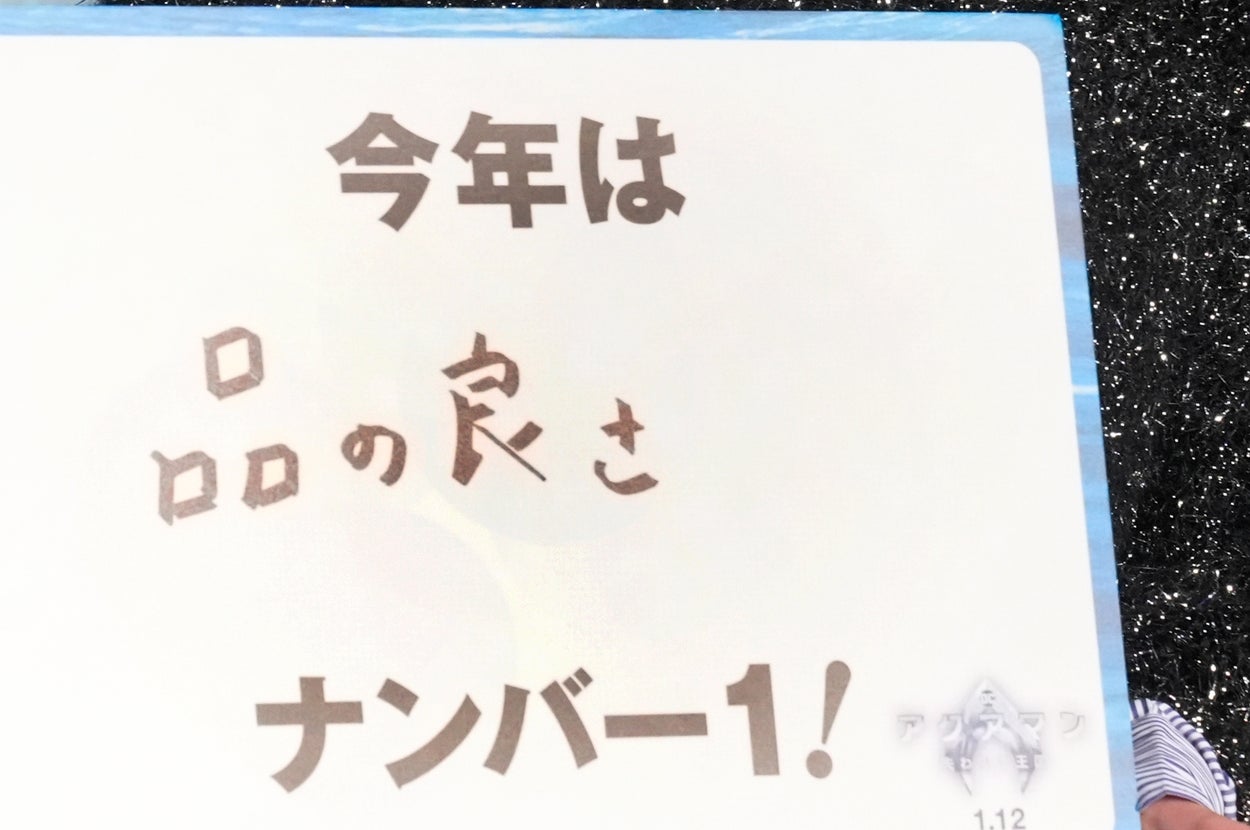 今年は
品の良さ
ナンバー1!
アクアマン
1.12